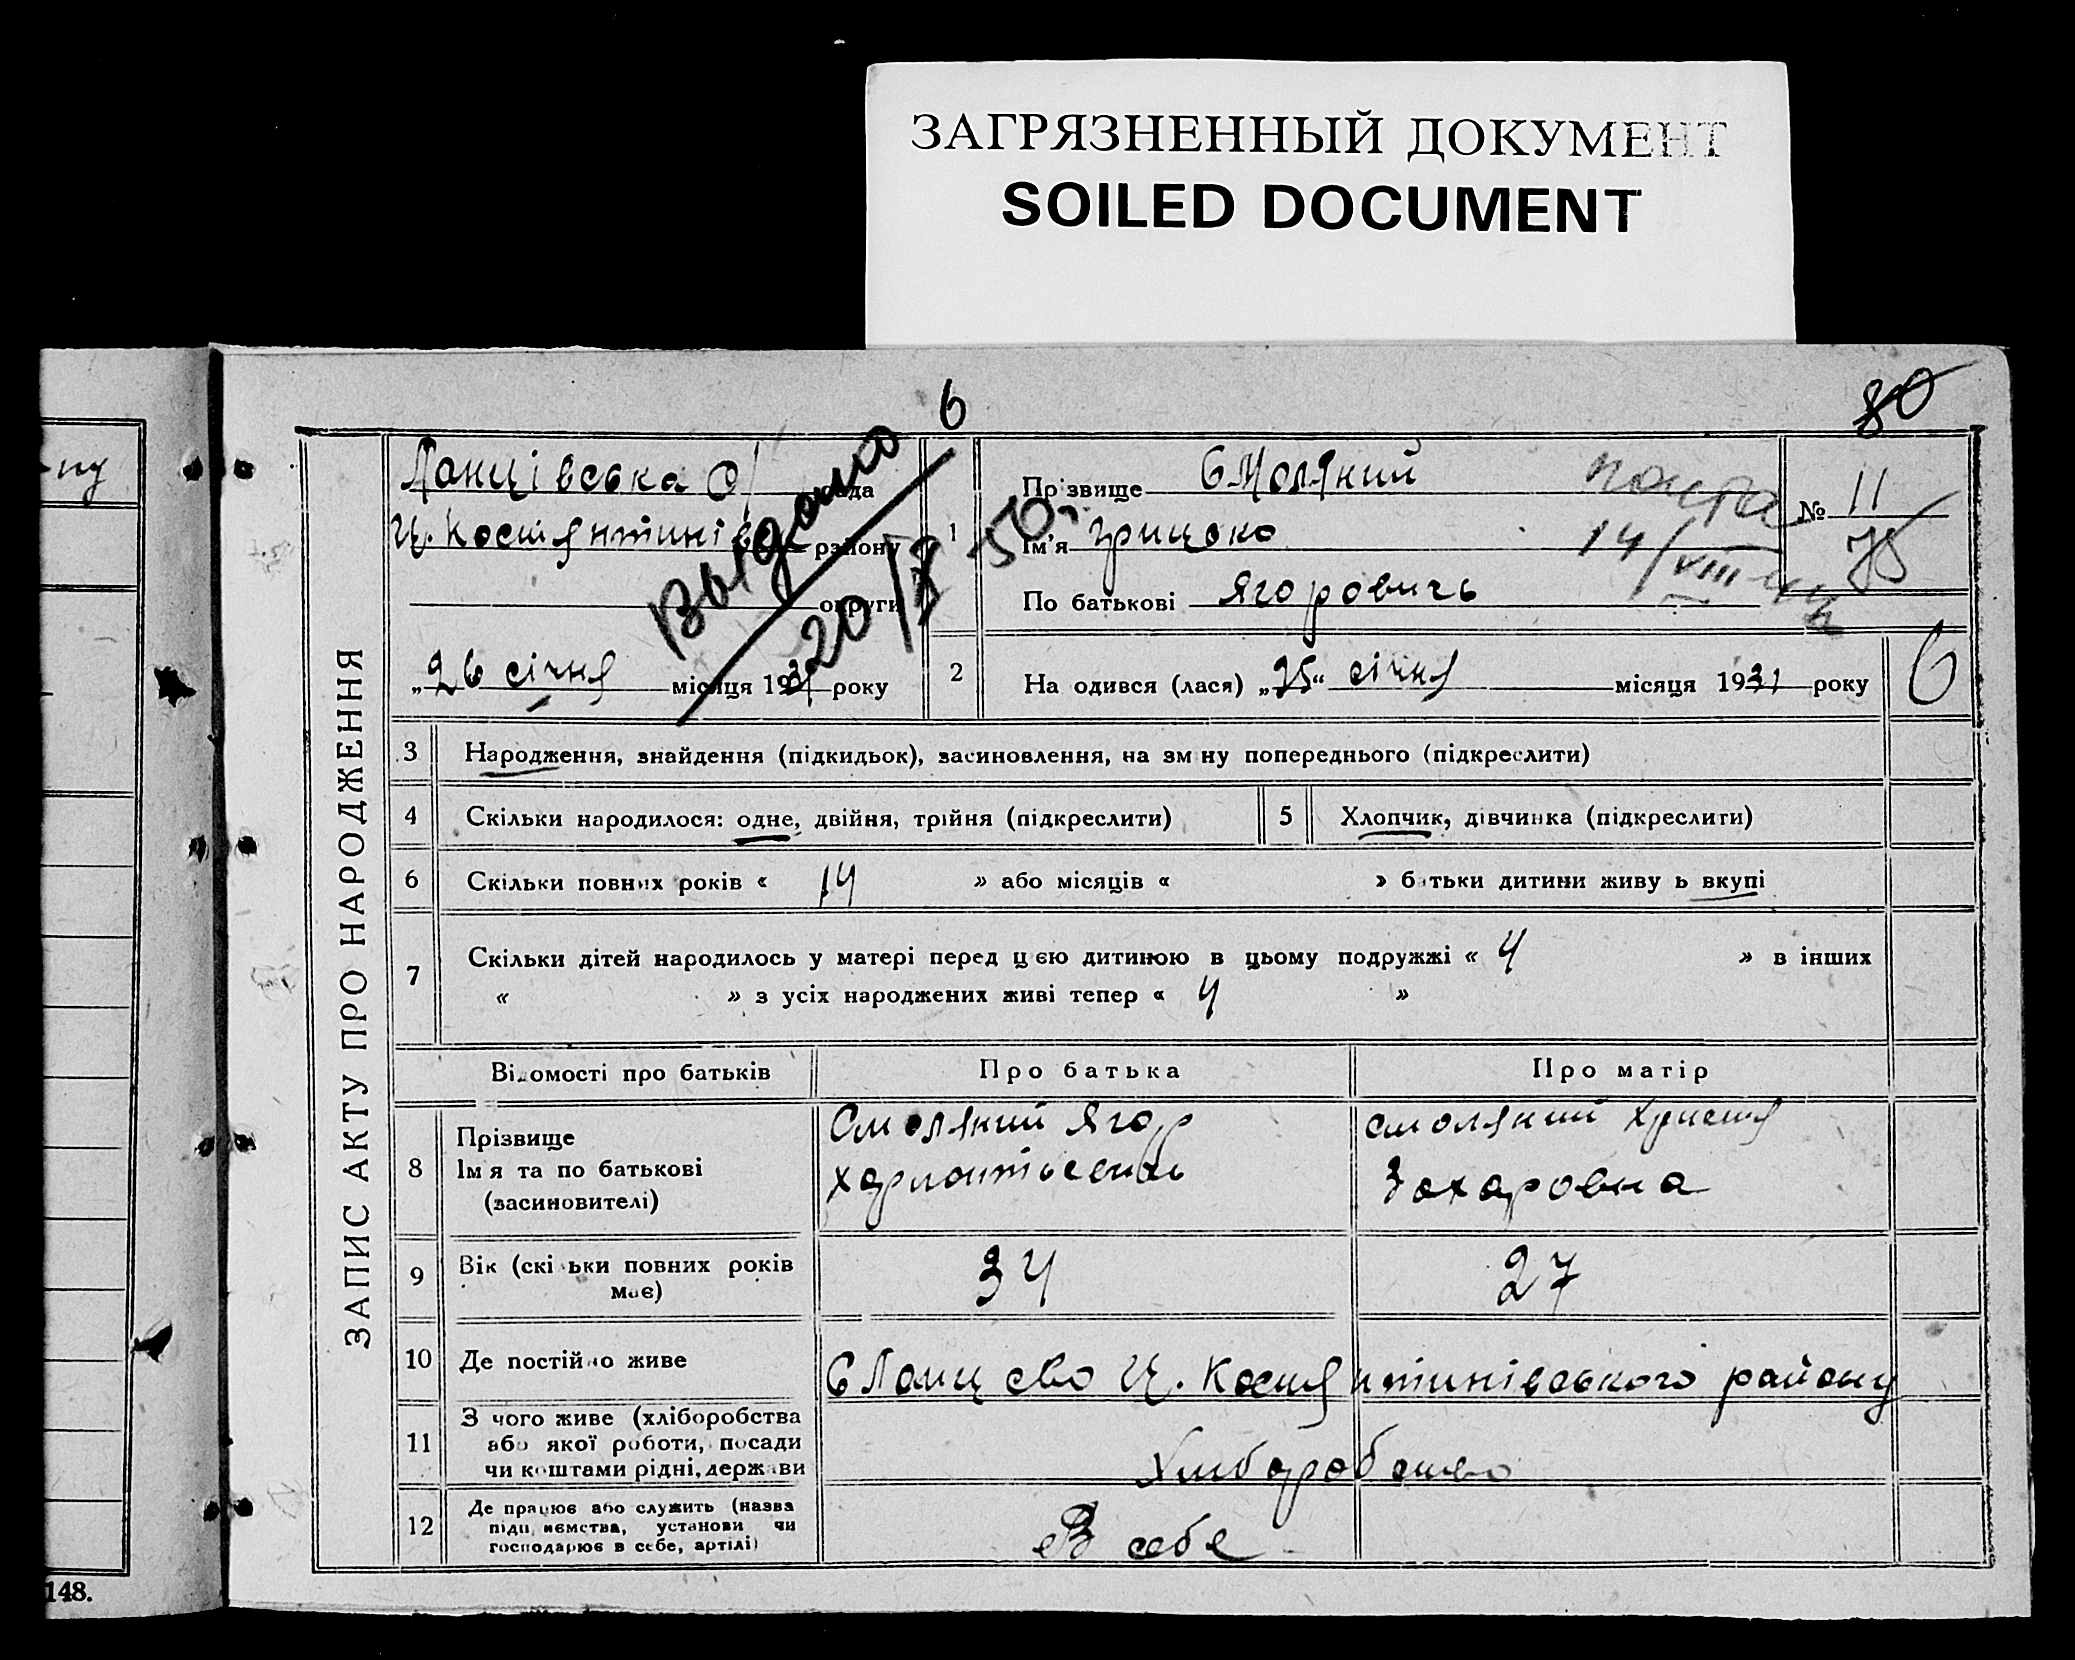 ЗАГРЯЗНЕННЫЙ ДОКУМЕНТ
SOILED DOCUMENT
6
80
ну
148.
ЗАПИС АКТУ ПРО НАРОДЖЕННЯ
Ланцівська С/ рада
Ц. Костянтинів району
округи
„26 січня місяця 1931 року
Выдано
20/X 50г.
1 Прізвище Смоляний
Ім'я Грицько
По батькові Ягоровичь
№ 11
75
14/VIII
2 На одився (лася) „25“ січня місяця 1931 року
6
3 Народження, знайдення (підкидьок), засиновлення, на зм ну попереднього (підкреслити)
4 Скільки народилося: одне, двійня, трійня (підкреслити) 5 Хлопчик, дівчинка (підкреслити)
6 Скільки повних років « 14 » або місяців « » батьки дитини живу ь вкупі
7 Скільки дітей народилось у матері перед цією дитиною в цьому подружжі « 4 » в інших
« » з усіх народжених живі тепер « 4 »
Відомості про батьків Про батька Про матір
8 Прізвище
Імя та по батькові
(засиновителі)
Смоляний Ягор
Смоляний Христя
Захаровна
9 Вік (скільки повних років
має)
34 27
10 Де постійно живе
С Ланцево Ц. Костянтинівського району
11 З чого живе (хліборобства
або якої роботи, посади
чи коштами рідні, держави
Хлиборобство
12 Де працює або служить (назва
підприємства, установи чи
господарює в себе, артілі)
В себе